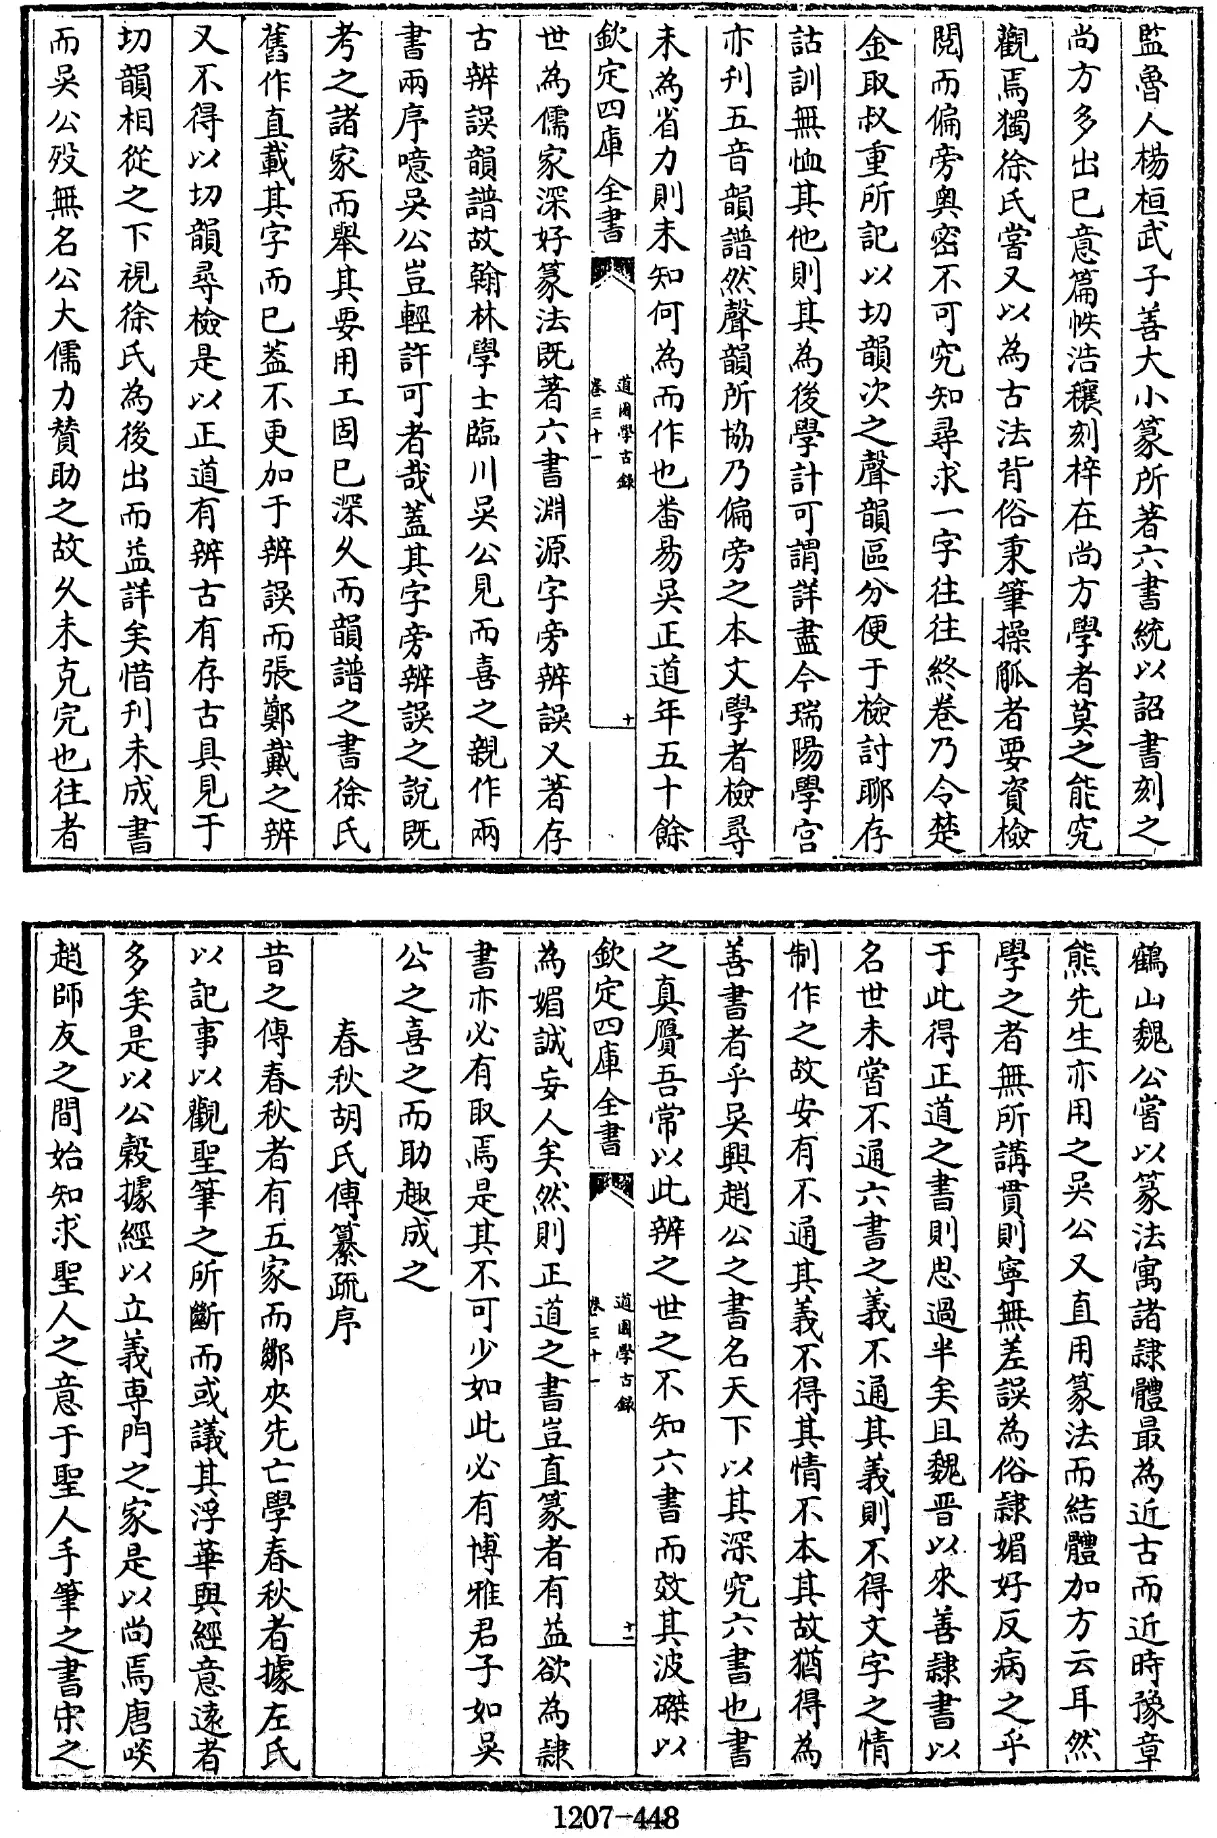 監魯人楊桓武子善大小篆所著六書統以詔書刻之
尚方多出已意篇帙浩穰刻梓在尚方學者莫之能究
觀焉獨徐氏嘗又以為古法背俗秉筆操觚者要資檢
閱而偏旁奥密不可究知尋求一字往往終卷乃令楚
金取叔重所記以切韻次之聲韻區分便于檢討聊存
詁訓無恤其他則其為後學計可謂詳盡今瑞陽學宫
亦刋五音韻譜然聲韻所協乃偏旁之本文學者檢尋
未為省力則未知何為而作也番易吴正道年五十餘
欽定四庫全書
道園學古録
卷三十一
十
世為儒家深好篆法既著六書淵源字旁辨誤又著存
古辨誤韻譜故翰林學士臨川吴公見而喜之親作兩
書兩序噫吴公豈輕許可者哉蓋其字旁辨誤之説既
考之諸家而舉其要用工固已深久而韻譜之書徐氏
舊作直載其字而已葢不更加于辨誤而張鄭戴之辨
又不得以切韻尋檢是以正道有辨古有存古具見于
切韻相從之下視徐氏為後出而益詳矣惜刋未成書
而吴公殁無名公大儒力賛助之故久未克完也往者
鶴山魏公嘗以篆法寓諸隷體最為近古而近時豫章
熊先生亦用之吴公又直用篆法而結體加方云耳然
學之者無所講貫則寧無差誤為俗隷媚好反病之乎
于此得正道之書則思過半矣且魏晋以來善隷書以
名世未嘗不通六書之義不通其義則不得文字之情
制作之故安有不通其義不得其情不本其故猶得為
善書者乎吴興趙公之書名天下以其深究六書也書
之真贋吾常以此辨之世之不知六書而效其波磔以
欽定四庫全書
道園學古録
卷三十一
十一
為媚誠妄人矣然則正道之書豈直篆者有益欲為隷
書亦必有取焉是其不可少如此必有博雅君子如吴
公之喜之而助趣成之
春秋胡氏傳纂疏序
昔之傳春秋者有五家而鄒夾先亡學春秋者據左氏
以記事以觀聖筆之所斷而或議其浮華與經意逺者
多矣是以公穀據經以立義專門之家是以尚焉唐啖
趙師友之間始知求聖人之意于聖人手筆之書宋之
1207-448